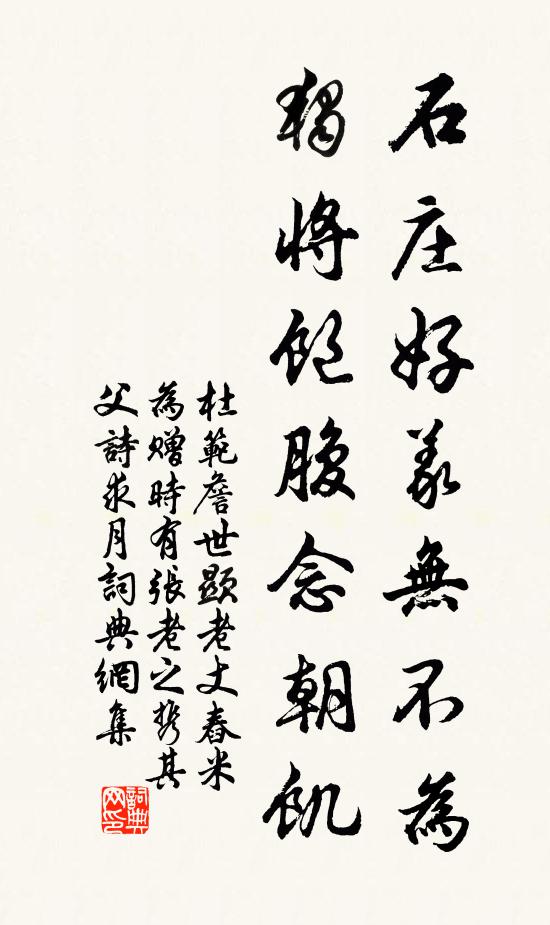 石庄好義無不為
獨將飽腹念朝飢
杜範詹世顯老丈舂米
為贈時有張老之携其
父詩求月詞典網集
詞典网印